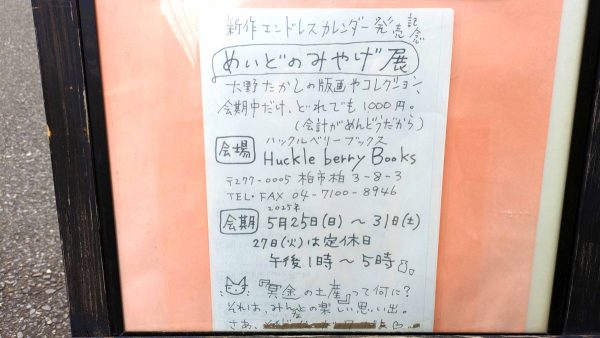 新作エンドレスカレンダー発売記念
めいどのみやげ展
大野たかしの版画やコレクション、
会期中だけ、どれでも1000円。
(会計がめんどうだから)
ハックルベリーブックス
会場 Huckle berry Books
〒277-0005 柏市柏 3-8-3
TEL・FAX 04-7100-8946
2025年
会期 5月25日(日)〜31日(土)
27日(火)は定休日
午後1時〜5時
『冥途の土産』って何に?
それは、みんなとの楽しい思い出。
さあ、